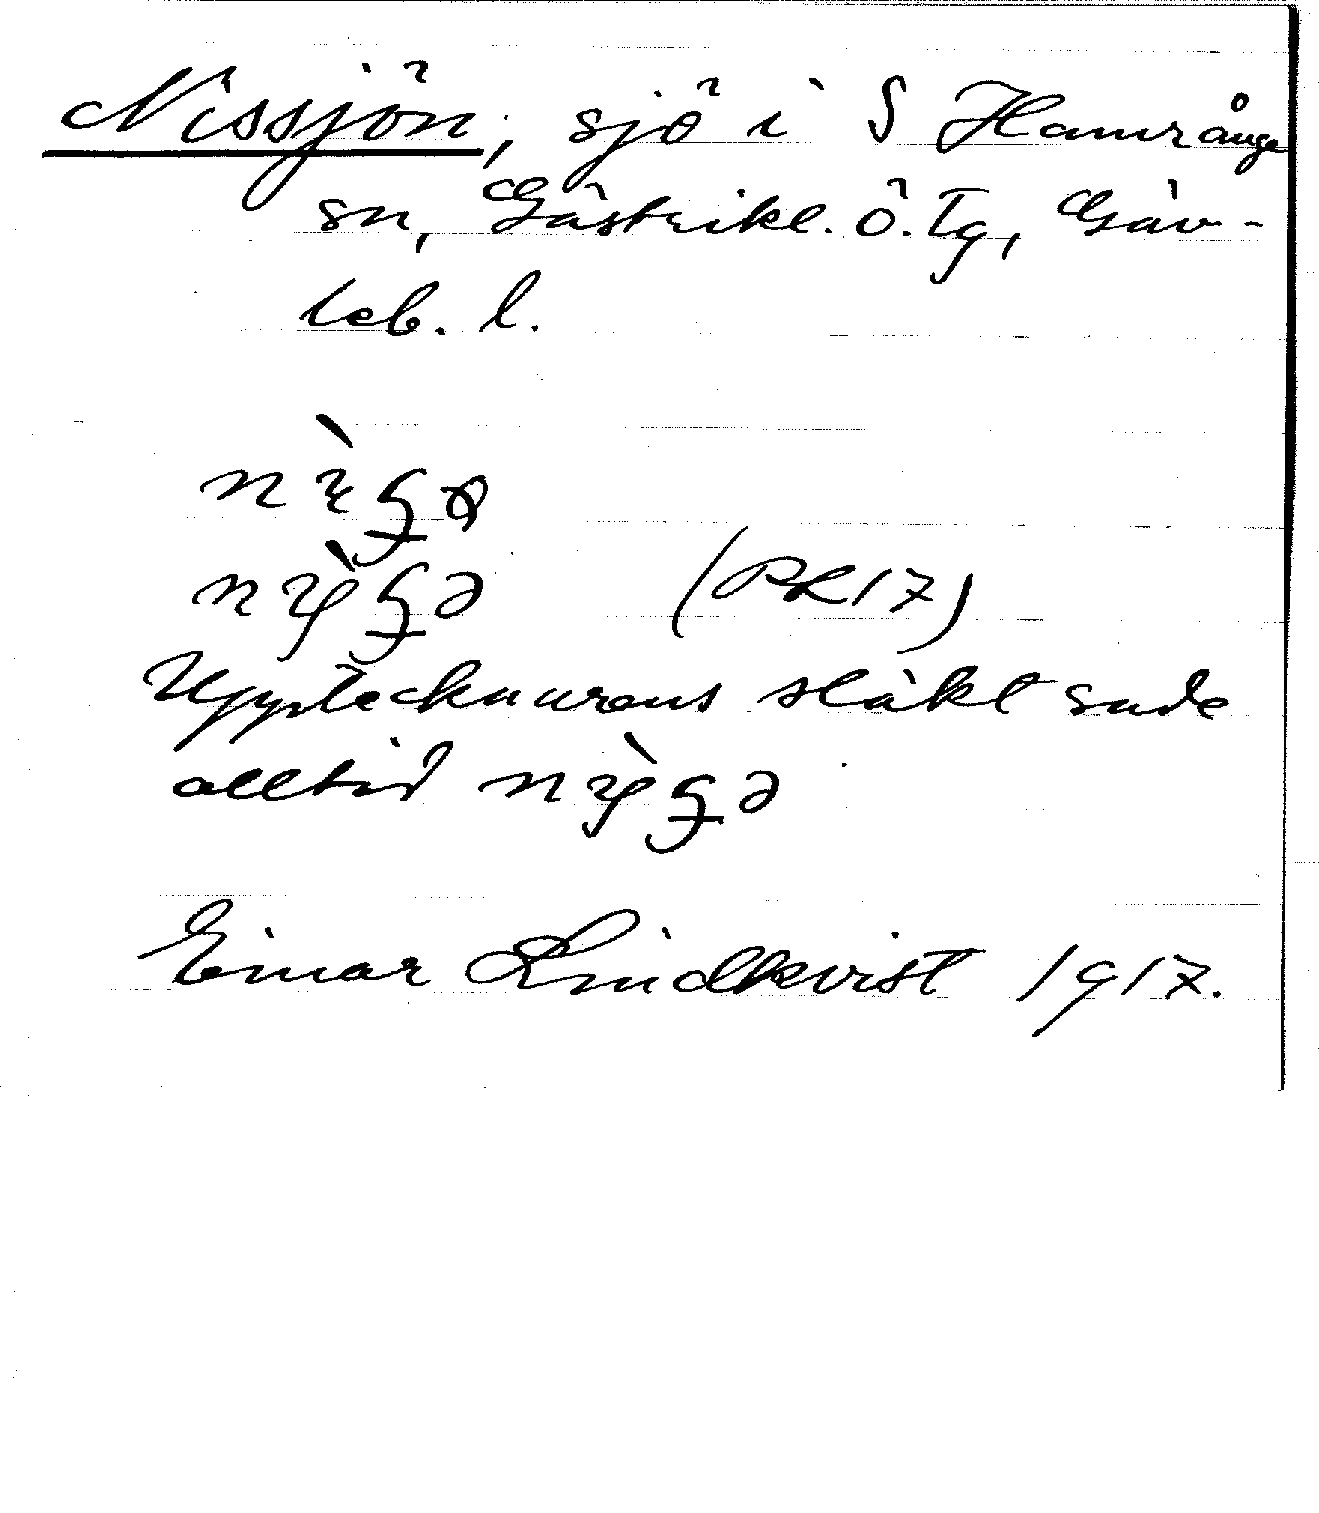 Nissjön, sjö i S Hamrånge
sn, Gästrikl. ö. Tg, Gäv-
leb. l.
(PR 17)
Upptecknarens släkt sade
alltid
Einar Lindkvist 1917.